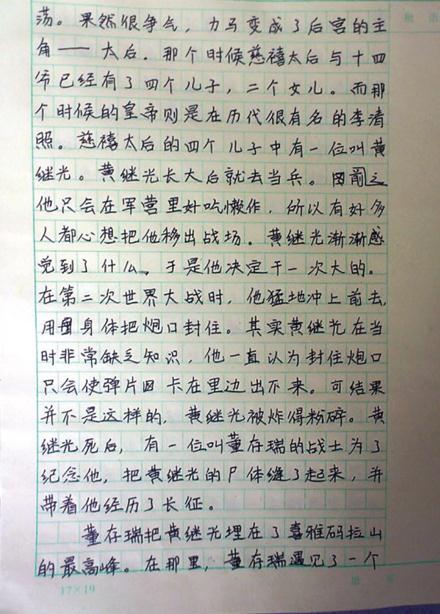 荡。果然很争气，力马变成了后宫的主
角——太后。那个时候慈禧太后与十四
爷已经有了四个儿子，二个女儿。而那
个时候的皇帝则是在历代很有名的李清
照。慈禧太后的四个儿子中有一位叫黄
继光。黄继光长大后就去当兵。因前之
他只会在军营里好吃懒作，所以有好多
人都心想把他移出战场。黄继光渐渐感
觉到了什么，于是他决定干一次大的。
在第二次世界大战时，他猛地冲上前去，
用身体把炮口封住。其实黄继光在当
时非常缺乏知识，他一直认为封住炮口
只会使弹片卡在里边出不来。可结果
并不是这样的，黄继光被炸得粉碎。黄
继光死后，有一位叫董存瑞的战士为了
纪念他，把黄继光的尸体缝了起来，并
带着他经历了长征。
董存瑞把黄继光埋在了喜雅码拉山
的最高峰。在那里，董存瑞遇见了一个
17×19